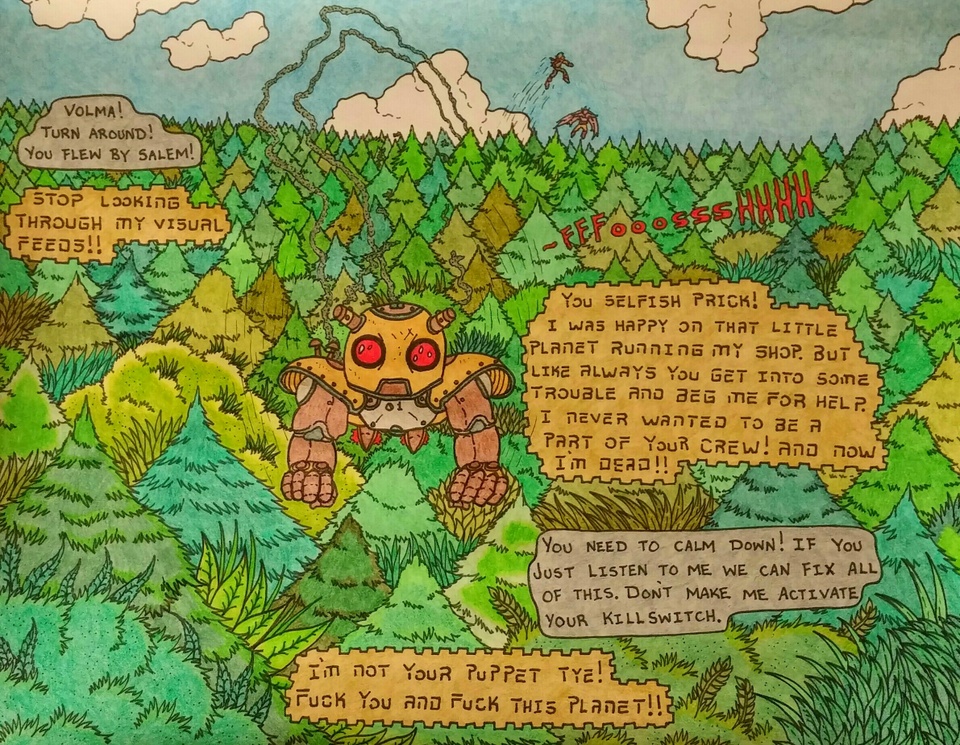 VOLMA!
TURN AROUND!
YOU FLEW BY SALEM!
STOP LOOKING
THROUGH MY VISUAL
FEEDS!!
~FFFooosssHHHH
YOU SELFISH PRICK!
I WAS HAPPY ON THAT LITTLE
PLANET RUNNING MY SHOP. BUT
LIKE ALWAYS YOU GET INTO SOME
TROUBLE AND BEG ME FOR HELP.
I NEVER WANTED TO BE A
PART OF YOUR CREW! AND NOW
I'M DEAD!!
01
YOU NEED TO CALM DOWN! IF YOU
JUST LISTEN TO ME WE CAN FIX ALL
OF THIS. DON'T MAKE ME ACTIVATE
YOUR KILLSWITCH.
I'M NOT YOUR PUPPET TYE!
FUCK YOU AND FUCK THIS PLANET!!